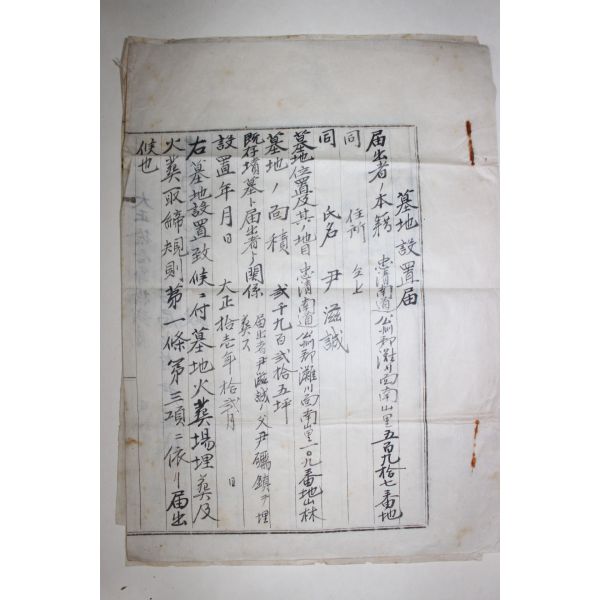 墓地設置届
届出者ノ本籍 忠清南道公州郡灘川面南山里五百九拾七番地
同 住所 仝上
同 氏名 尹滋誠
墓地位置及其ノ地目 忠清南道公州郡灘川面南山里一〇九番地山林
墓地ノ面積 弐千九百弐拾五坪
既存墳墓ト届出者トノ関係 届出者尹滋誠ノ父尹鎭ヲ埋
葬ス
設置年月日 大正拾壱年拾弐月 日
右墓地設置致候ニ付墓地火葬場埋葬及
火葬取締規則第一條第三項ニ依リ届出
候也